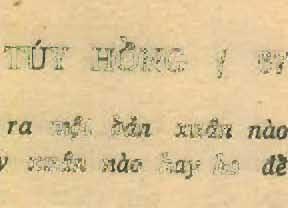 TÚY HỒNG
ra một bản xuân nào
xuân nào hay ho để